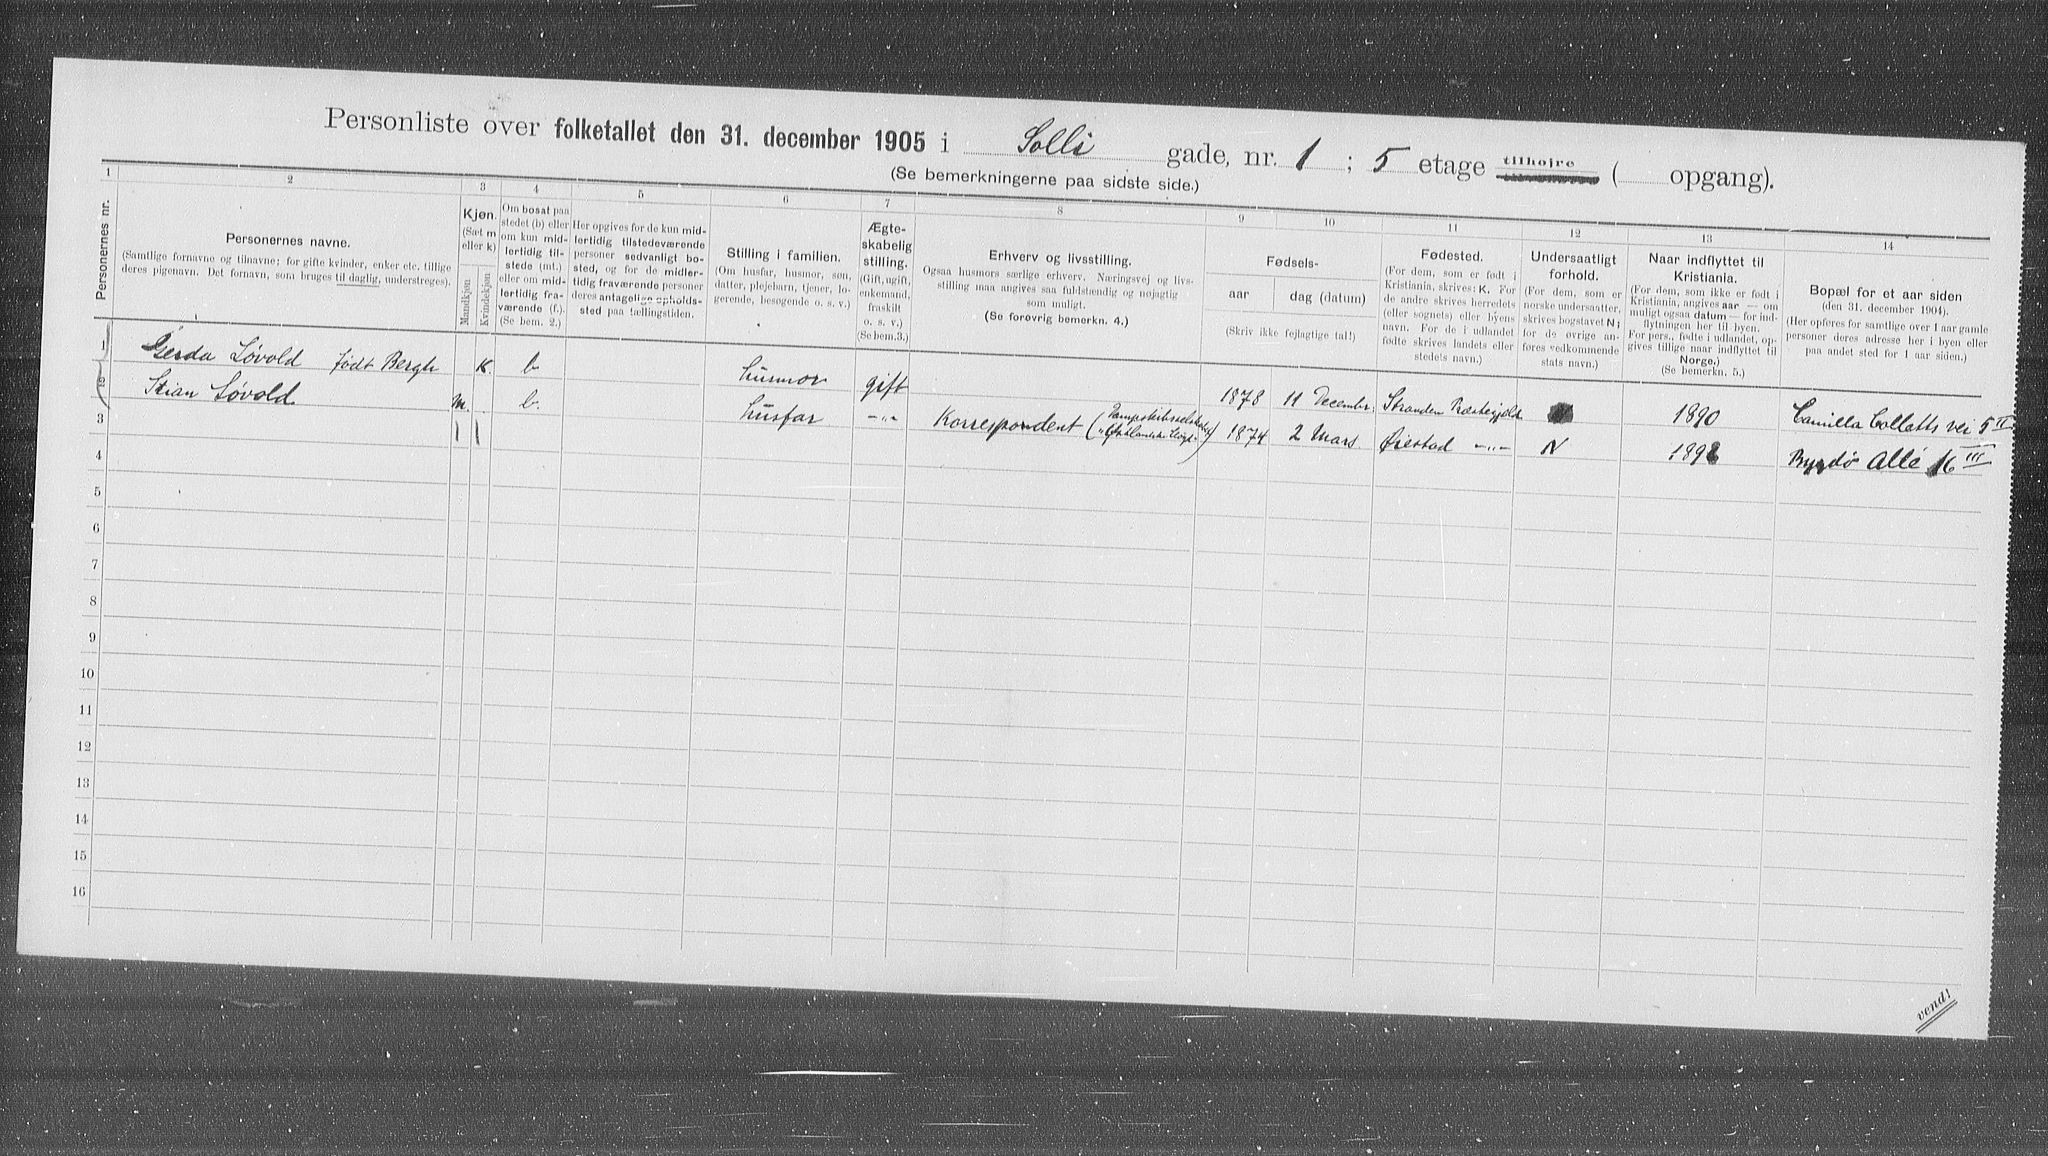 Personliste over folketallet den 31. december 1905 i Solli gade, nr. 1 ; 5 etage tilhøjre ( opgang).
(Se bemerkningerne paa sidste side.)
1 2 3 4 5 6 7 8 9 10 11 12 13 14
Personernes nr.
Personernes navne.
(Samtlige fornavne og tilnavne; for gifte kvinder, enker etc. tillige
deres pigenavn. Det fornavn, som bruges til daglig, understreges).
Kjøn.
(Sæt m
eller k)
Mandkjøn
Kvindekjøn
Om bosat paa
stedet (b) eller
om kun mid-
lertidig til-
stede (mt.)
eller om mid-
lertidig fra-
værende (f.).
(Se bem. 2.)
Her opgives for de kun mid-
lertidig tilstedeværende
personer sedvanligt bo-
sted, og for de midler-
tidig fraværende personer
deres antagelige opholds-
sted paa tællingstiden.
Stilling i familien.
(Om husfar, husmor, søn,
datter, plejebarn, tjener, lo-
gerende, besøgende o. s. v.)
Ægte-
skabelig
stilling.
(Gift, ugift,
enkemand,
fraskilt
o. s. v.)
(Se bem. 3.)
Erhverv og livsstilling.
Ogsaa husmors særlige erhverv. Næringsvej og livs-
stilling maa angives saa fuldstændig og nøjagtig
som muligt.
(Se forøvrig bemerkn. 4.)
Fødsels-
aar dag (datum)
(Skriv ikke fejlagtige tal!)
Fødested.
(For dem, som er født i
Kristiania, skrives: K. For
de andre skrives herredets
(eller sognets) eller byens
navn. For de i udlandet
fødte skrives landets eller
stedets navn.)
Undersaatligt
forhold.
(For dem, som er
norske undersaatter,
skrives bogstavet N;
for de øvrige an-
føres vedkommende
stats navn.)
Naar indflyttet til
Kristiania.
(For dem, som ikke er født i
Kristiania, angives aar — om
muligt ogsaa datum — for ind-
flytningen her til byen.
For pers., fødte i udlandet, op-
gives tillige naar indflyttet til
Norge.)
(Se bemerkn. 5.)
Bopæl for et aar siden
(den 31. december 1904).
(Her opføres for samtlige over 1 aar gamle
personer deres adresse her i byen eller
paa andet sted for 1 aar siden.)
1 Gerda Løvold født Bergh K. b husmor gift 1878 11 Decembr. Stranden Præstegjeld 1890 Camilla Colletts vei 5 II
2 Stian Løvold m. b. husfar -„- Korrespondent 1874 2 Mars Øiestad -„- N Bygdø Allé 16 III
3
4
5
6
7
8
9
10
11
12
13
14
15
16
vend!